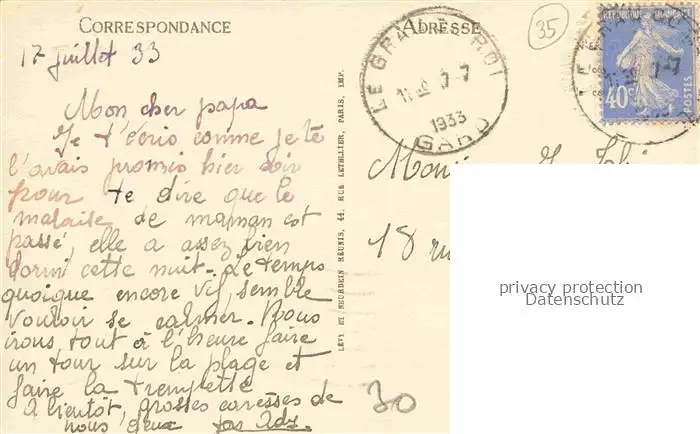 CORRESPONDANCE
17 juillet 33
Mon cher papa
Je t'écris comme je te
l'avais promis hier soir
pour te dire que le
malaise de maman est
passé, elle a assez bien
dormi cette nuit. Le temps
quoique encore vif, semble
vouloir se calmer. Nous
irons tout à l'heure faire
un tour sur la plage et
faire la trempette
A bientôt, grosses caresses de
nous deux
LÉVY ET NEURDEIN RÉUNIS, 44, RUE LETELLIER, PARIS, IMP.
ADRESSE
LE GRAU DU ROI
7-7
1933
GARD
35
RÉPUBLIQUE FRANÇAISE
40c
POSTES
18 ru
privacy protection
Datenschutz
30